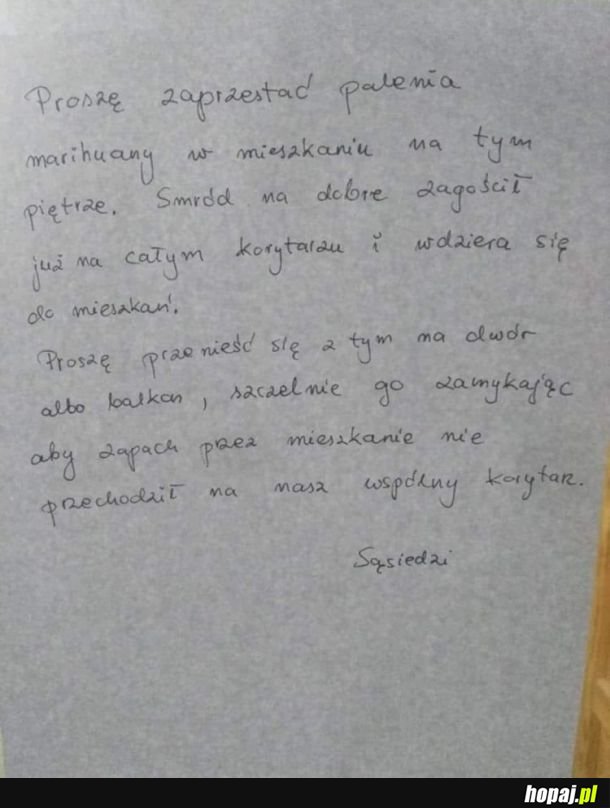 Proszę zaprzestać palenia
marihuany w mieszkaniu na tym
piętrze. Smród na dobre zagościł
już na całym korytarzu i wdziera się
do mieszkań.
Proszę przenieść się z tym na dwór
albo balkon, szczelnie go zamykając
aby zapach przez mieszkanie nie
przechodził na nasz wspólny korytarz.
Sąsiedzi
hopaj.pl